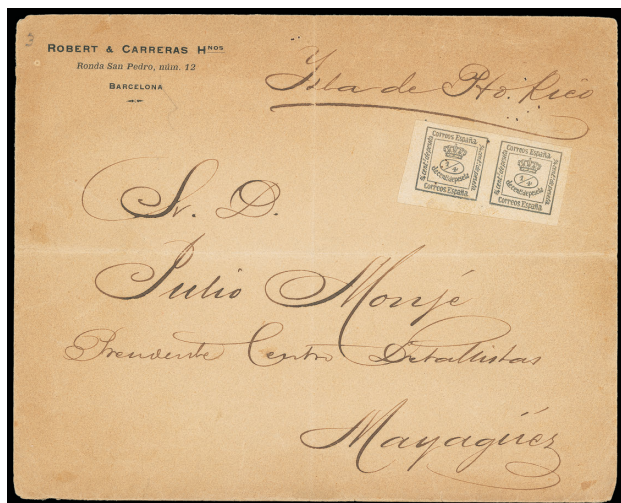 ROBERT & CARRERAS HNOS
Ronda San Pedro, núm. 12
BARCELONA
Isla de Pto. Rico
Correos España
¼ cent.º de peseta
1/4
de cent.º de peseta
¼ cent.º de peseta
Correos España
Correos España
¼ cent.º de peseta
1/4
de cent.º de peseta
¼ cent.º de peseta
Correos España
Sr. D.
Julio Monjé
Presidente Centro Detallistas
Mayagüez